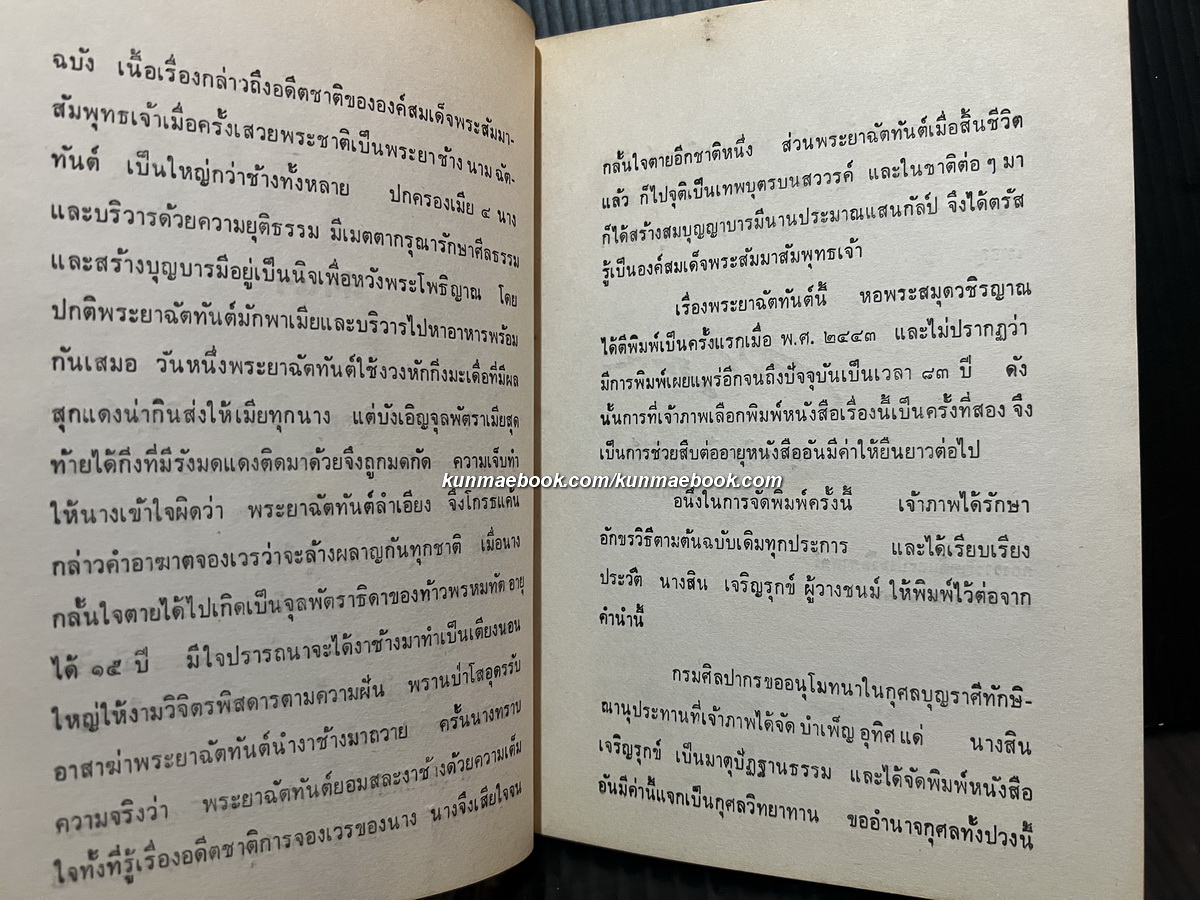 ฉบัง เนื้อเรื่องกล่าวถึงอดีตชาติขององค์สมเด็จพระสัมมา-
สัมพุทธเจ้าเมื่อครั้งเสวยพระชาติเป็นพระยาช้าง นาม ฉัต-
ทันต์ เป็นใหญ่กว่าช้างทั้งหลาย ปกครองเมีย ๔ นาง
และบริวารด้วยความยุติธรรม มีเมตตากรุณารักษาศีลธรรม
และสร้างบุญบารมีอยู่เป็นนิจเพื่อหวังพระโพธิญาณ โดย
ปกติพระยาฉัตทันต์มักพาเมียและบริวารไปหาอาหารพร้อม
กันเสมอ วันหนึ่งพระยาฉัตทันต์ใช้งวงหักกิ่งมะเดื่อที่มีผล
สุกแดงน่ากินส่งให้เมียทุกนาง แต่บังเอิญจุลพัตราเมียสุด
ท้ายได้กิ่งที่มีรังมดแดงติดมาด้วยจึงถูกมดกัด ความเจ็บทำ
ให้นางเข้าใจผิดว่า พระยาฉัตทันต์ลำเอียง จึงโกรธแค้น
กล่าวคำอาฆาตจองเวรว่าจะล้างผลาญกันทุกชาติ เมื่อนาง
กลั้นใจตายได้ไปเกิดเป็นจุลพัตราธิดาของท้าวพรหมทัต อายุ
ได้ ๑๕ ปี มีใจปรารถนาจะได้งาช้างมาทำเป็นเตียงนอน
ใหญ่ให้งามวิจิตรพิสดารตามความฝัน พรานป่าโสอุดรรับ
อาสาฆ่าพระยาฉัตทันต์นำงาช้างมาถวาย ครั้นนางทราบ
ความจริงว่า พระยาฉัตทันต์ยอมสละงาช้างด้วยความเต็ม
ใจทั้งที่รู้เรื่องอดีตชาติการจองเวรของนาง นางจึงเสียใจจน
กลั้นใจตายอีกชาติหนึ่ง ส่วนพระยาฉัตทันต์เมื่อสิ้นชีวิต
แล้ว ก็ไปจุติเป็นเทพบุตรบนสววรค์ และในชาติต่อ ๆ มา
ก็ได้สร้างสมบุญญาบารมีนานประมาณแสนกัลป์ จึงได้ตรัส
รู้เป็นองค์สมเด็จพระสัมมาสัมพุทธเจ้า
เรื่องพระยาฉัตทันต์นี้ หอพระสมุดวชิรญาณ
ได้ตีพิมพ์เป็นครั้งแรกเมื่อ พ.ศ. ๒๔๔๓ และไม่ปรากฏว่า
มีการพิมพ์เผยแพร่อีกจนถึงปัจจุบันเป็นเวลา ๘๓ ปี ดัง
นั้นการที่เจ้าภาพเลือกพิมพ์หนังสือเรื่องนี้เป็นครั้งที่สอง จึง
เป็นการช่วยสืบต่ออายุหนังสืออันมีค่าให้ยืนยาวต่อไป
kunmaebook.com/kunmaebook.com
อนึ่งในการจัดพิมพ์ครั้งนี้ เจ้าภาพได้รักษา
อักขรวิธีตามต้นฉบับเดิมทุกประการ และได้เรียบเรียง
ประวัติ นางสิน เจริญรุกข์ ผู้วางชนม์ ให้พิมพ์ไว้ต่อจาก
คำนำนี้
กรมศิลปากรขออนุโมทนาในกุศลบุญราศีทักษิ-
ณานุประทานที่เจ้าภาพได้จัด บำเพ็ญ อุทิศ แด่ นางสิน
เจริญรุกข์ เป็นมาตุปัฏฐานธรรม และได้จัดพิมพ์หนังสือ
อันมีค่านี้แจกเป็นกุศลวิทยาทาน ขออำนาจกุศลทั้งปวงนี้